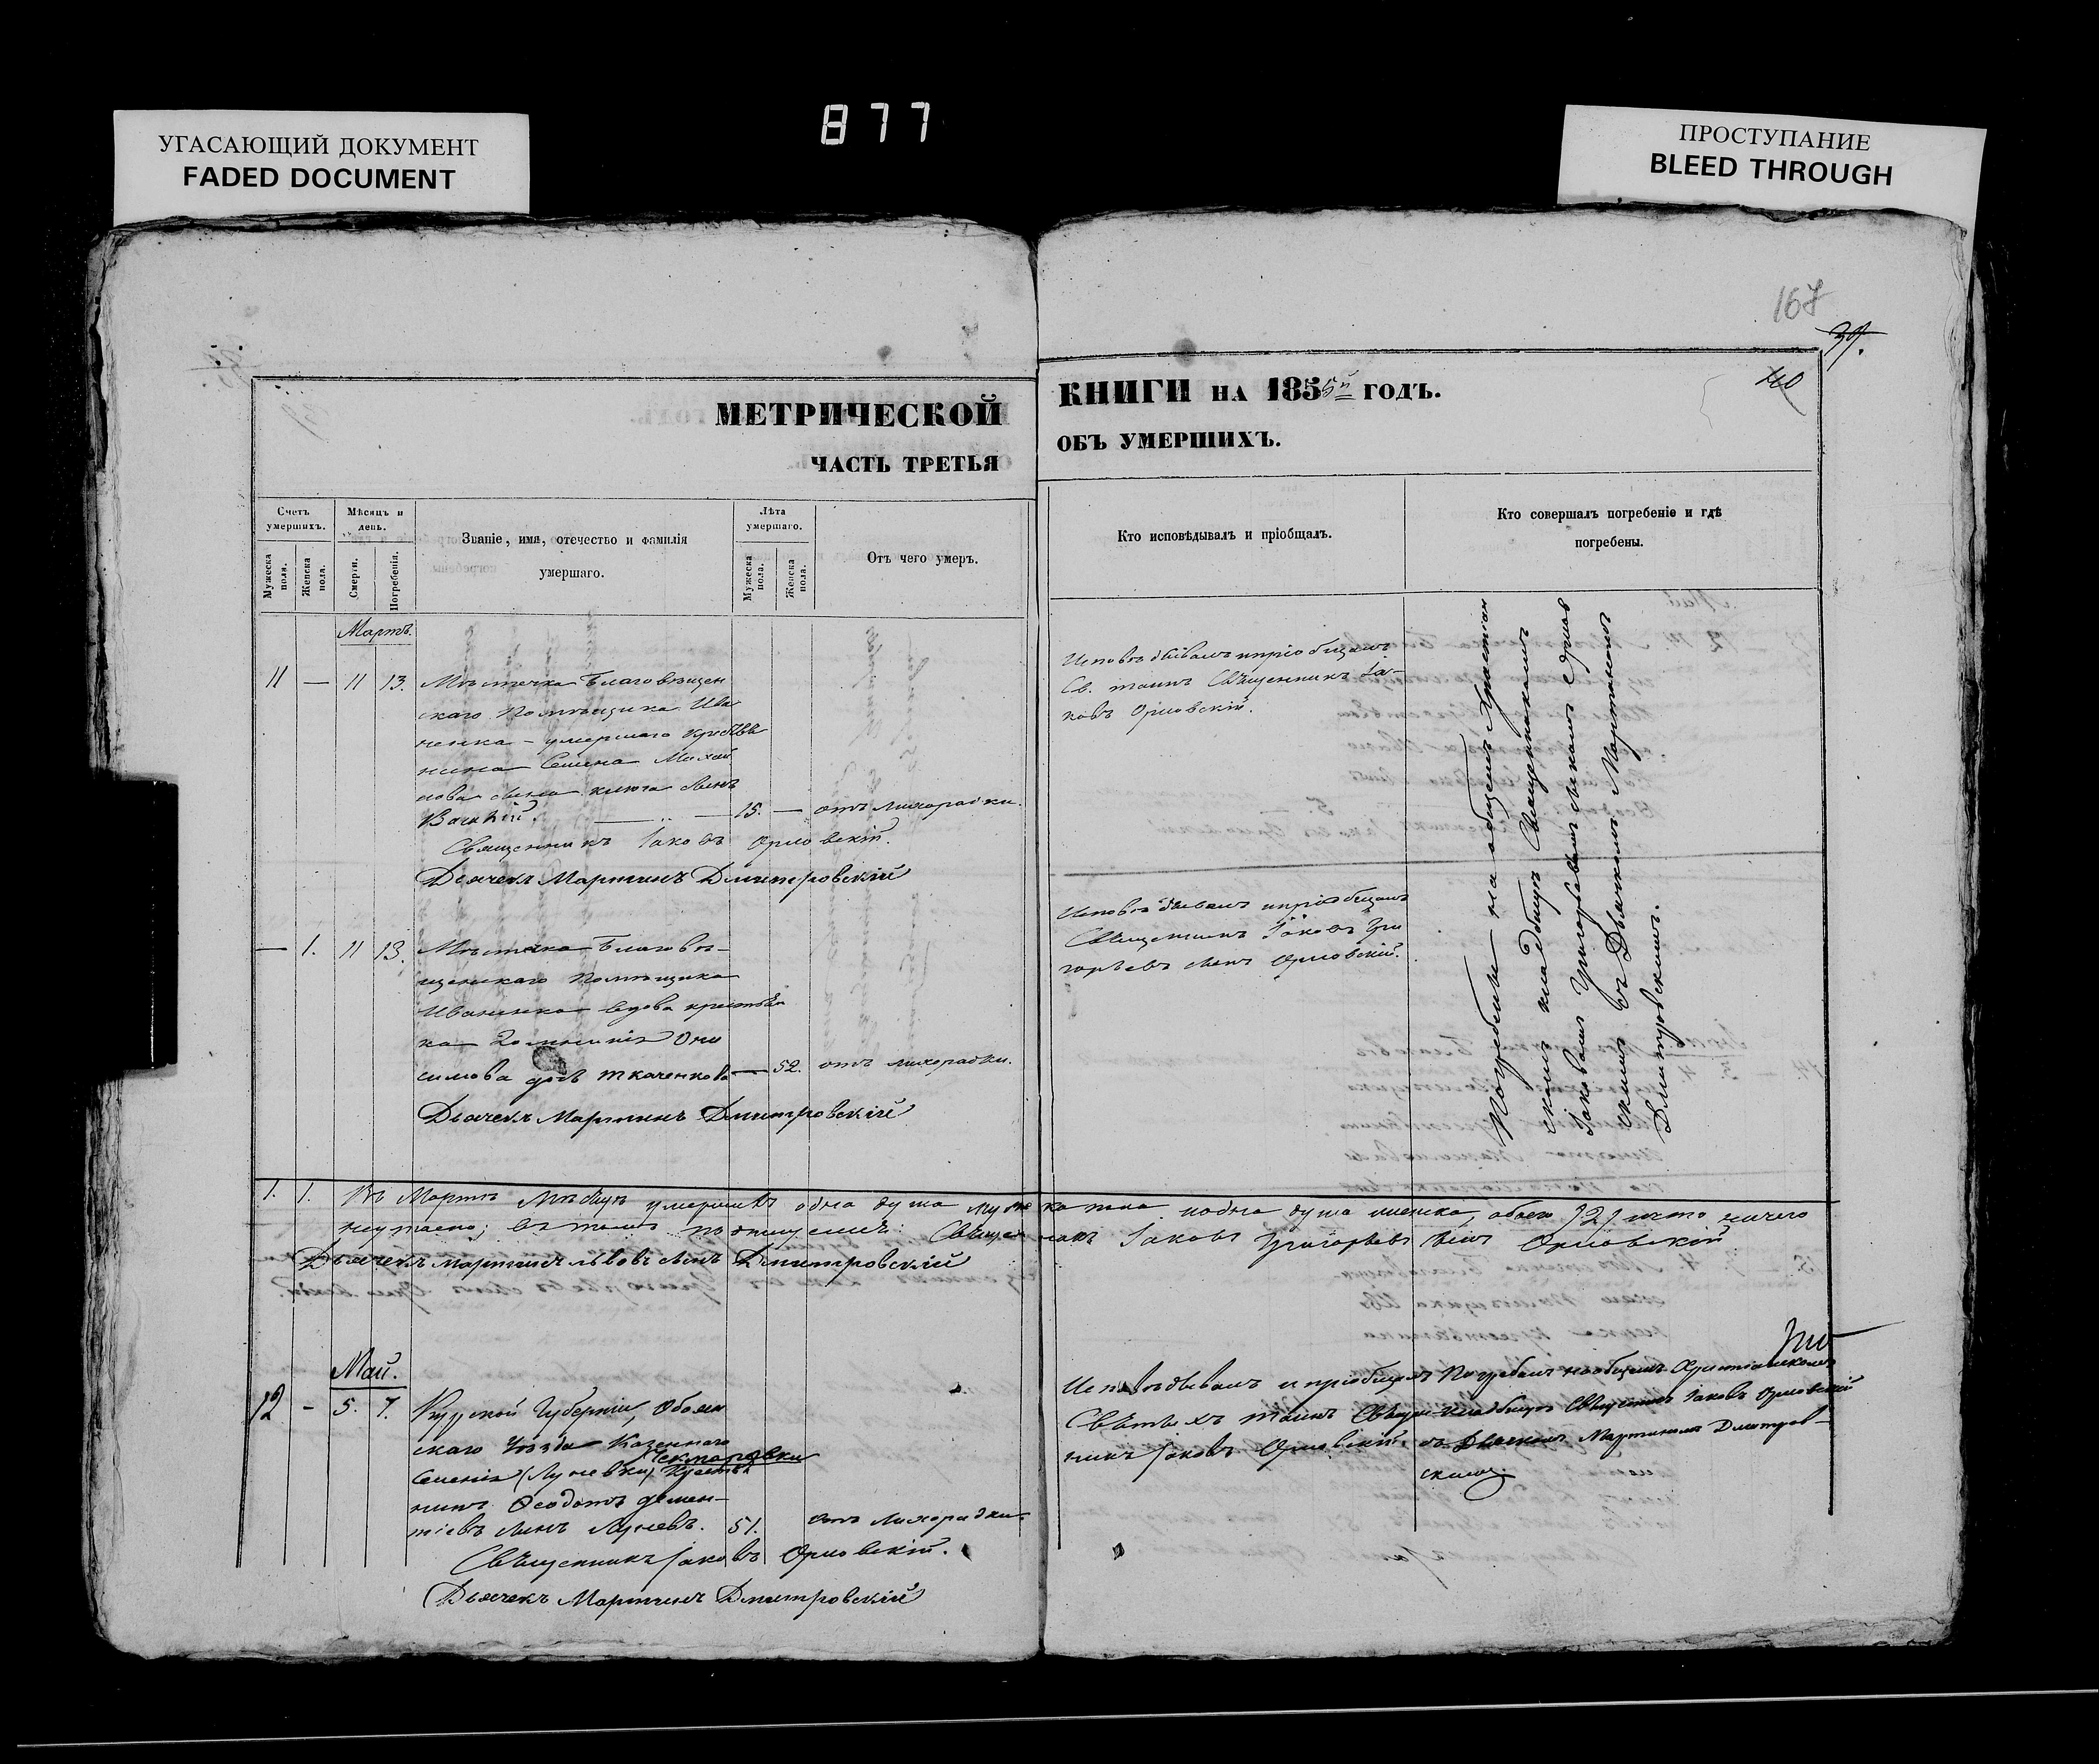 877
УГАСАЮЩИЙ ДОКУМЕНТ
FADED DOCUMENT
ПРОСТУПАНИЕ
BLEED THROUGH
167
39.
40
МЕТРИЧЕСКОЙ
ЧАСТЬ ТРЕТЬЯ
КНИГИ НА 1855й ГОДЪ.
ОБЪ УМЕРШИХЪ.
Счетъ умершихъ.
Мужеска пола.
Женска пола.
Мѣсяцъ и день.
Смерти.
Погребенія.
Званіе, имя, отечество и фамилія
умершаго.
Лѣта умершаго.
Мужеска пола.
Женска пола.
Отъ чего умеръ.
Кто исповѣдывалъ и пріобщалъ.
Кто совершалъ погребеніе и гдѣ
погребены.
Мартъ.
11 — 11 13. Мѣстечка Благовѣщен
скаго Помѣщика Ива
ненка – умершаго
нина Семена
сынъ
15. — отъ лихорадки.
Священникъ Іаковъ Орловскій.
Дьячекъ Мартинъ Дмитровскій
Исповѣдывалъ и пріобщалъ
Св. таинъ Священникъ Іа-
ковъ Орловскій.
— 1. 11 13. Мѣстечка Благовѣ-
щенскаго Помѣщика
Иваненка вдова
ка Они
симова Ткаченкова — 52. отъ лихорадки.
Дьячекъ Мартинъ Дмитровскій
Исповѣдывалъ и пріобщалъ
Священникъ Іаковъ Гри
горьевъ сынъ Орловскій.
Погребены на общемъ Христіан
скомъ кладбищѣ Священникомъ
Іаковомъ Григорьевымъ сыномъ Орлов
скимъ съ Дьячкомъ Мартиномъ
Дмитровскимъ.
1. 1. Въ Мартѣ Мѣсяцѣ умершихъ одна душа мужеска пола и одна душа женска, обоего /2/ что ничего
неутаено; въ томъ подпишемъ: Священникъ Іаковъ Григорьевъ сынъ Орловскій
Дьячекъ Мартинъ Львовъ сынъ Дмитровскій
Май.
12 – 5. 7. Курской Губерніи, Обоян
скаго Уѣзда Казеннаго
Селенія (Луневки)
нинъ Ѳеодотъ Демен-
тіевъ сынъ Луневъ. 51. отъ лихорадки
Священникъ Іаковъ Орловскій.
Дьячекъ Мартинъ Дмитровскій
Исповѣдывалъ и пріобщалъ
Святыхъ таинъ Священ-
никъ Іаковъ Орловскій.
Погребалъ на общемъ Христіанскомъ
кладбищѣ Священникъ Іаковъ Орловскій
съ Дьячкомъ Мартиномъ Дмитров-
скимъ.